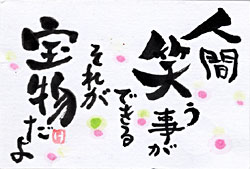 人間
笑う事が
できる
それが
宝物だよ